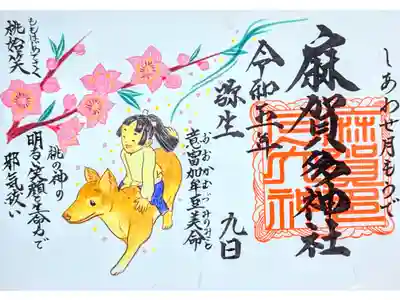 しあわせ月もうで
麻賀多神社
令和五年
弥生 九日
おおかむづみのみこと
意富加牟豆美命
桃の神の
明るい笑顔と生命力で
邪気祓い
ももはじめてさく
桃始笑